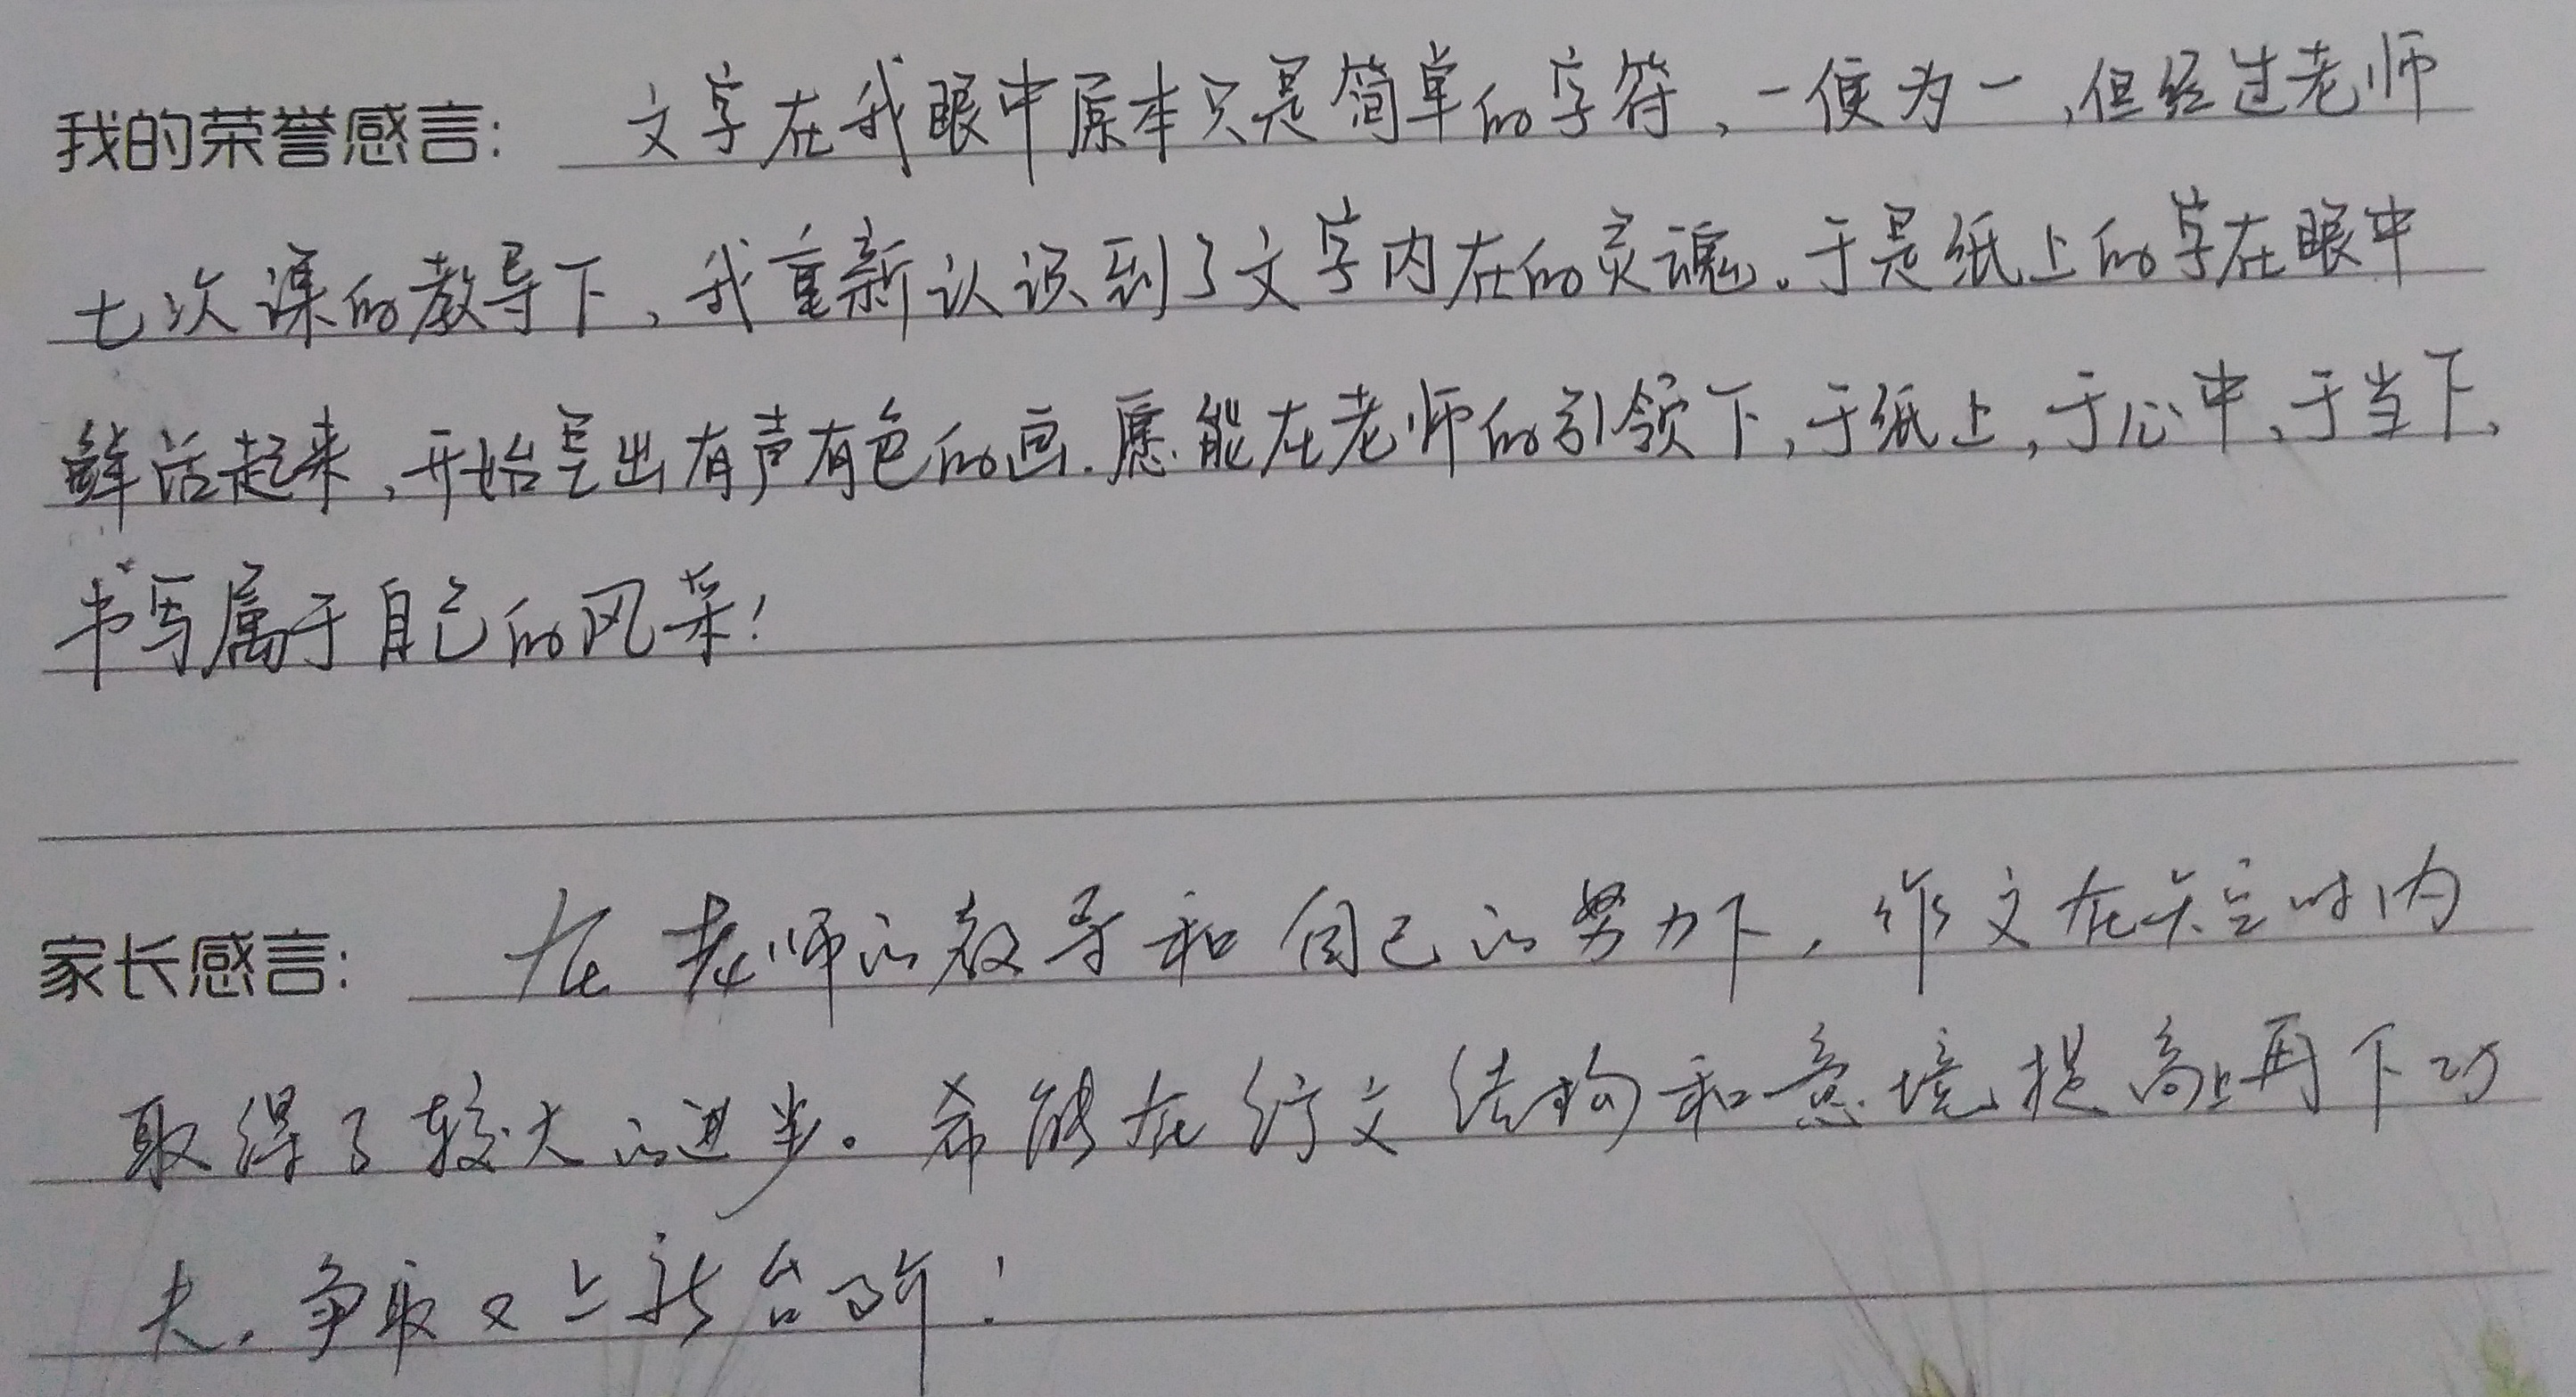 我的荣誉感言: 文字在我眼中原本只是简单的字符、一便为一,但经过老师
七次课的教导下、我重新认识到了文字内在的灵魂。于是纸上的字在眼中
鲜活起来,开始呈出有声有色的画.愿能在老师的引领下,于纸上,于心中、于当下、
书写属于自己的风采!
家长感言: 在老师的教导和自己的努力下,作文在关立时内
取得了较大的进步。希能在行文结构和意境提高上再下功
夫,争取又上新台阶!